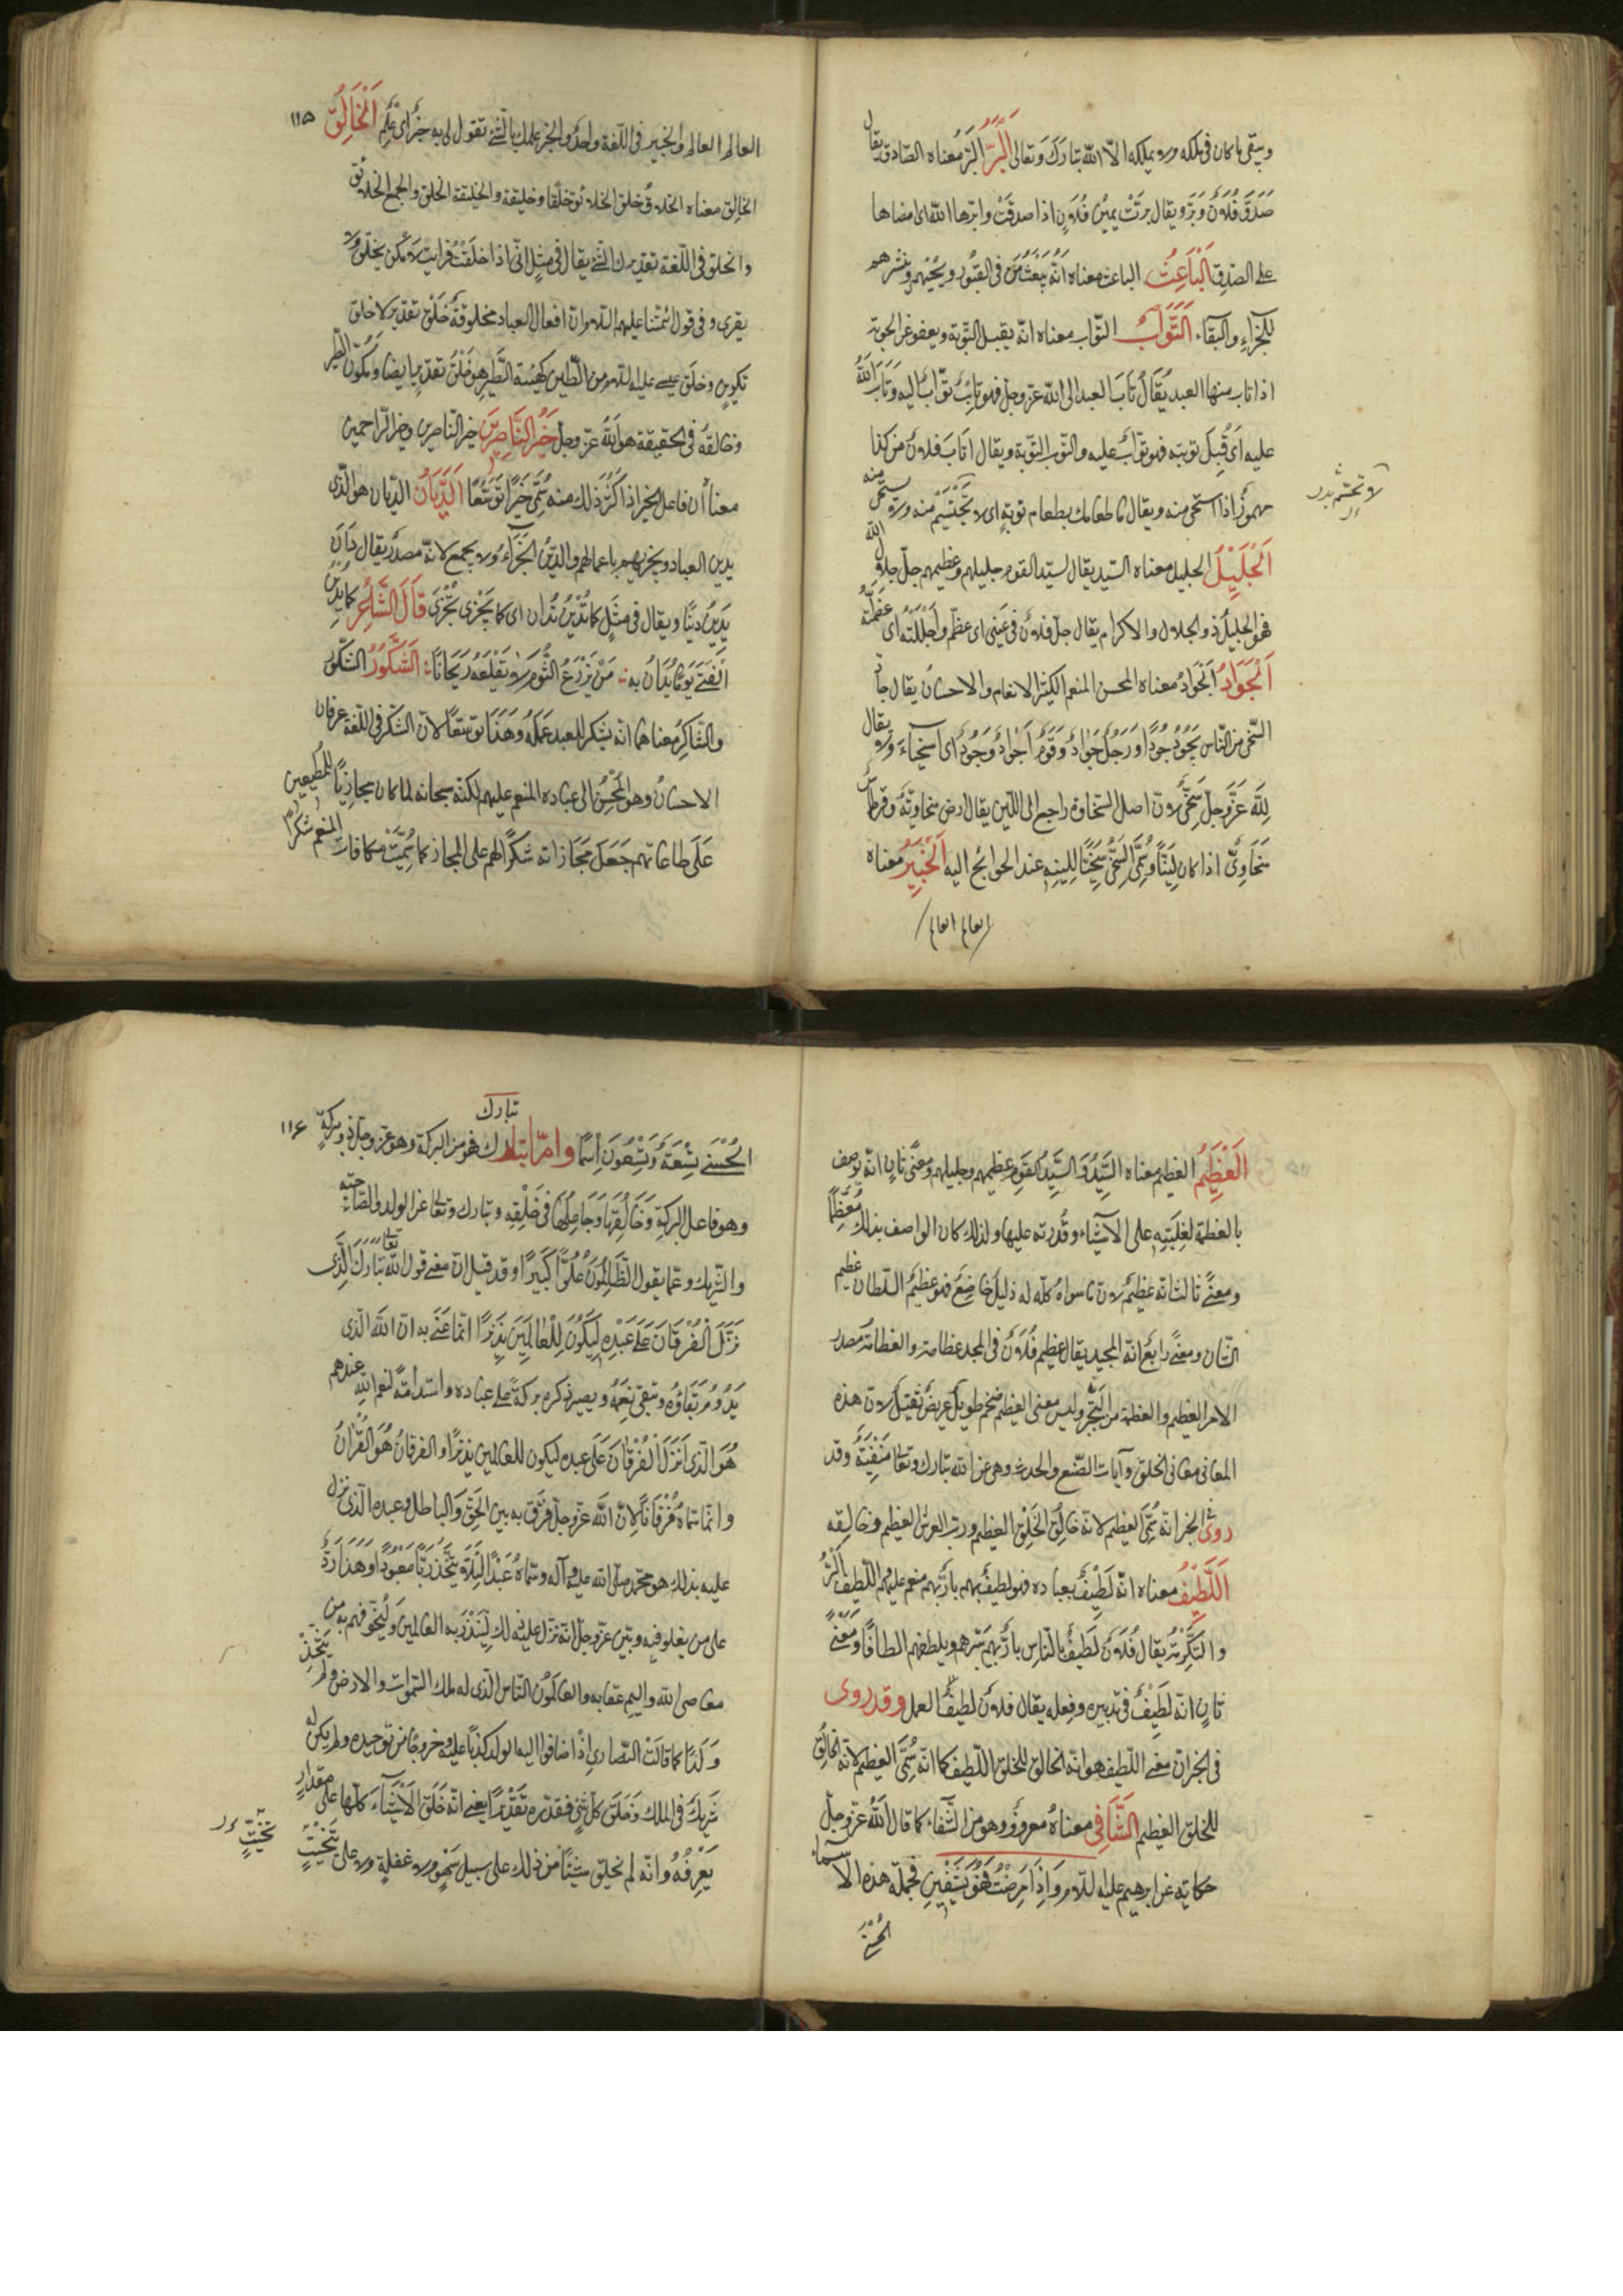 ويبقى ما كان في ملكه ولا يملكه الا الله تبارك وتعالى البر البر معناه الصادق يقال
صدق فلان وبر ويقال برت يمين فلان اذا صدقت وابرها الله اى امضاها
على الصدق الباعث الباعث معناه انه يبعث من في القبور ويحييهم وينشرهم
للجزاء والبقاء التواب التواب معناه انه يقبل التوبة ويعفو عن الحوبة
اذا تاب منها العبد يقال تاب العبد الى الله عز وجل فهو تائب تواب اليه وتاب الله
عليه اى قبل توبته فهو تواب عليه والتوب التوبة ويقال اتاب فلان من كذا
مهموز اذا استحى منه ويقال ما طعامك بطعام توبة اى لا يحتشم منه ولا يستحى منه
الجليل الجليل معناه السيد يقال لسيد القوم جليلهم وعظيمهم جل جلال الله
فهو الجليل ذو الجلال والاكرام يقال جل فلان في عيني اى عظم واجللته اى عظمته
الجواد الجواد معناه المحسن المنعم الكثير الانعام والاحسان يقال جاد
السخي من الناس يجود جودا ورجل جواد وقوم اجواد وجود اى اسخياء ولا يقال
لله عز وجل سخي لان اصل السخاوة راجع الى اللين يقال ارض سخاوية وقرطاس
سخاوي اذا كان لينا وسمى السخي سخيا للينه عند الحوائج اليه الخبير معناه
العالم العالم
لا تحتشم بدر
١١٥
العالم العالم والخبير في اللغة واحد والخبر علمك بالشئ تقول لى به خبر اى علم الخالق
الخالق معناه الخلاق خلق الخلائق خلقا وخليقة والخليقة الخلق والجمع الخلائق
والخلق في اللغة تقديرك الشئ يقال في مثل انى اذا خلقت فريت لا كمن يخلق ولا
يفرى وفي قول ائمتنا عليهم السلام ان افعال العباد مخلوقة خلق تقدير لا خلق
تكوين وخلق عيسى عليه السلام من الطين كهيئة الطير هو خلق تقدير ايضا ومكون الطير
وخالقه في الحقيقة هو الله عز وجل خير الناصرين خير الناصرين وخير الراحمين
معناه ان فاعل الخير اذا كثر ذلك منه سمى خيرا توسعا الديان الديان هو الذى
يدين العباد ويجزيهم باعمالهم والدين الجزاء ولا يجمع لانه مصدر يقال دان
يدين دينا ويقال في مثل كما تدين تدان اى كما تجزى تجزى قال الشاعر كما يدين
الفتى يوما يدان به من يزرع الثوم لا يقلعه ريحانا الشكور الشكور
والشاكر معناهما انه يشكر للعبد عمله وهذا توسعا لان الشكر في اللغة عرفان
الاحسان وهو المحسن الى عباده المنعم عليهم لكنه سبحانه لما كان مجازيا للمطيعين
على طاعاتهم جعل مجازاته شكرا لهم على المجاز كما سميت مكافات المنعم شكرا
العظيم العظيم معناه السيد والسيد القوم عظيمهم وجليلهم ومعنى ثان انه يوصف
بالعظمة لغلبته على الاشياء وقدرته عليها ولذلك كان الواصف بذلك معظما
ومعنى ثالث انه عظيم لان ما سواه كله له ذليل خاضع فهو عظيم السلطان عظيم
الشان ومعنى رابع انه المجيد يقال عظيم فلان في المجد عظامة والعظامة مصدر
الامر العظيم والعظمة من التجبر وليس معنى العظيم ضخم طويل عريض ثقيل لان هذه
المعاني معاني الخلق وآيات الصنع والحدث وهى عن الله تبارك وتعالى منفية وقد
روى في الخبر انه سمى العظيم لانه خالق الخلق العظيم ورب العرش العظيم وخالقه
اللطيف معناه انه لطيف بعباده فهو لطيف بهم بار بهم منعم عليهم واللطف البر
والتكرمة يقال فلان لطيف بالناس بار بهم يبرهم ويلطفهم الطافا ومعنى
ثان انه لطيف في تدبيره وفعله يقال فلان لطيف العمل وقد روى
في الخبر ان معنى اللطيف هو انه الخالق للخلق اللطيف كما انه سمى العظيم لانه الخالق
للخلق العظيم الشافي معناه معروف وهو من الشفاء كما قال الله عز وجل
حكاية عن ابرهيم عليه السلام واذا مرضت فهو يشفين فجملة هذه الاسماء
الحسنى
١١٦
تبارك
الحسنى تسعة وتسعون اسما واما تبارك فهو من البركة وهو عز وجل ذو بركة
وهو فاعل البركة وخالقها وجاعلها في خلقه وتبارك وتعالى عن الولد والصاحبة
والشريك وعما يقول الظالمون علوا كبيرا وقد قيل ان معنى قول الله تعالى تبارك الذى
نزل الفرقان على عبده ليكون للعالمين نذيرا انما عنى به ان الله الذى
يدوم بقاؤه وتبقى نعمه ويصير ذكره بركة على عباده واستدامة لنعم الله عندهم
هو الذى انزل الفرقان على عبده ليكون للعالمين نذيرا والفرقان هو القران
وانما سماه فرقانا لان الله عز وجل فرق به بين الحق والباطل وعبده الذى نزل
عليه بذلك هو محمد صلى الله عليه وآله وسماه عبدا لئلا يتخذ ربا معبودا وهذا رد
على من يغلو فيه وبين عز وجل انه نزل عليه ذلك لينذر به العالمين وليخوفهم به من
معاصى الله واليم عقابه والعالمون الناس الذى له ملك السموات والارض ولم يتخذ
ولدا كما قالت النصارى اذ اضافوا اليه الولد كذبا عليه وخروجا من توحيده ولم يكن له
شريك في الملك وخلق كل شئ فقدره تقديرا يعنى انه خلق الاشياء كلها على مقدار
يعرفه وانه لم يخلق شيئا من ذلك على سبيل سهو ولا غفلة ولا على تنحيت